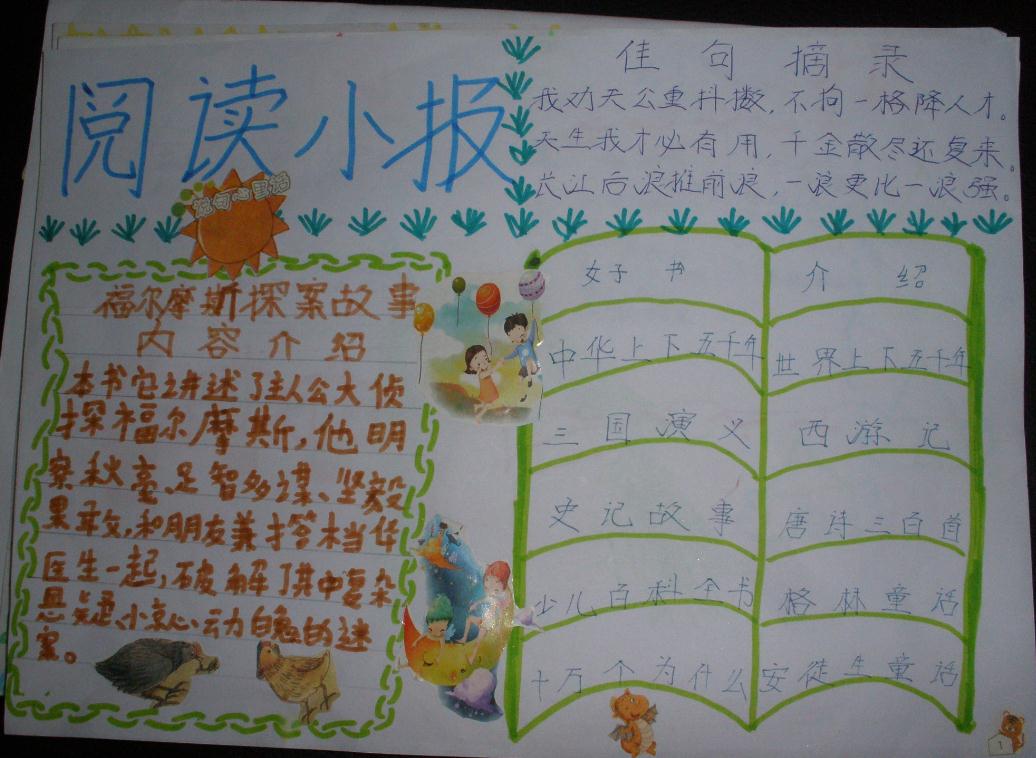 阅读小报
说句心里话
佳句摘录
我劝天公重抖擞，不拘一格降人才。
天生我才必有用，千金散尽还复来。
长江后浪推前浪，一浪更比一浪强。
福尔摩斯探案故事
内容介绍
本书它讲述了主人公大侦
探福尔摩斯，他明
察秋毫、足智多谋、坚毅
果敢，和朋友兼搭档华
医生一起，破解了其中复杂
悬疑、惊心动魄的迷
案。
好书 介绍
中华上下五千年 世界上下五千年
三国演义 西游记
史记故事 唐诗三百首
少儿百科全书 格林童话
十万个为什么 安徒生童话
1